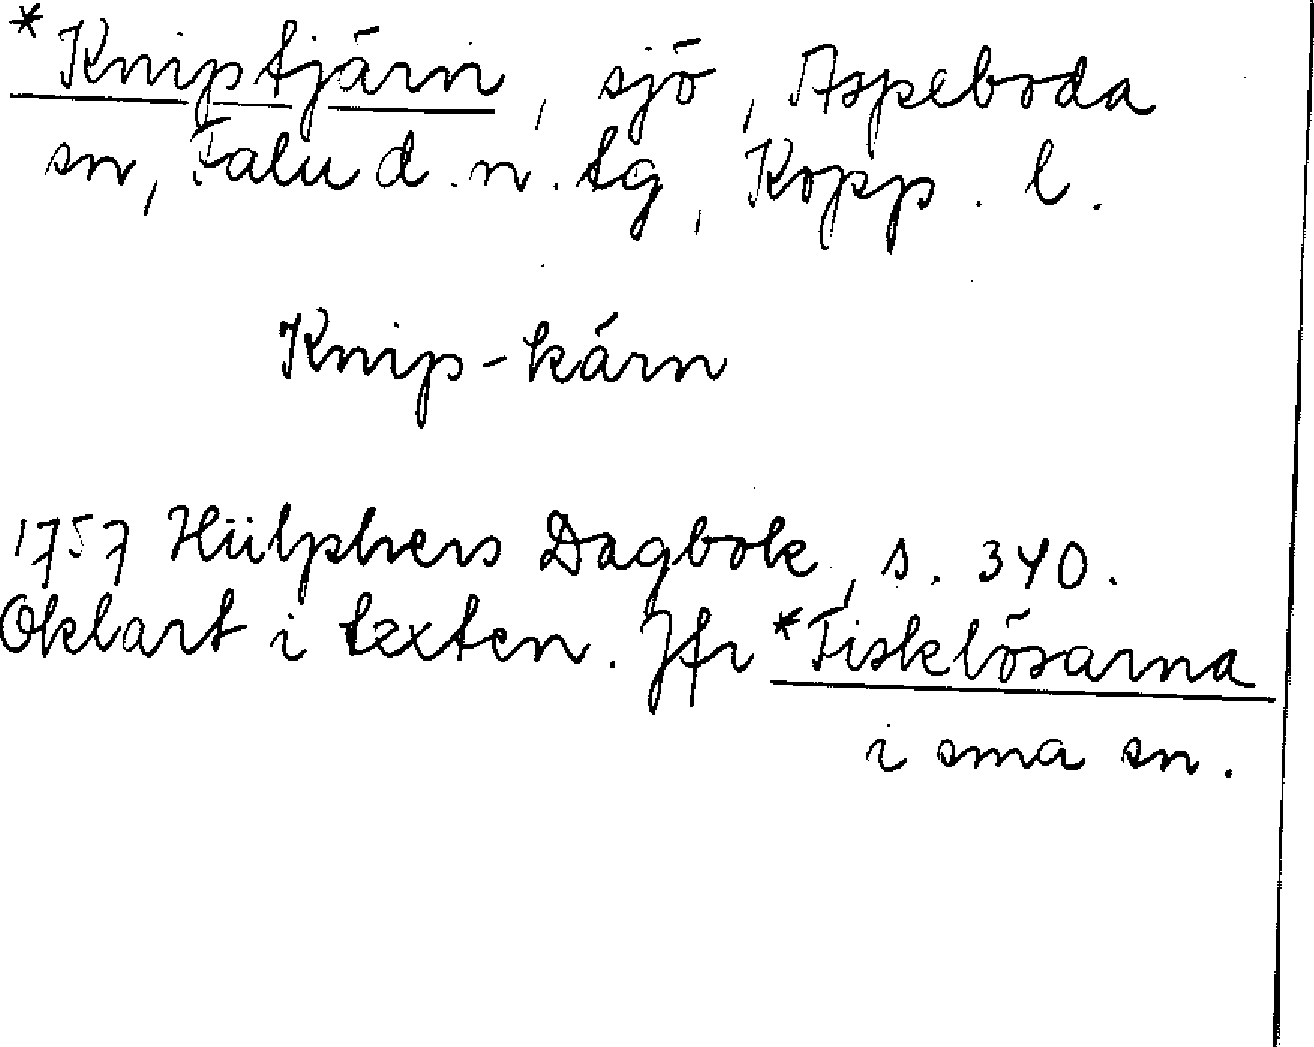 *Kniptjärn, sjö, Aspeboda
sn, Falu d. n. tg, Kopp. l.
Knip-kärn
1757 Hülphers Dagbok, s. 340.
Oklart i texten. Jfr *Fisklösarna
i sma sn.